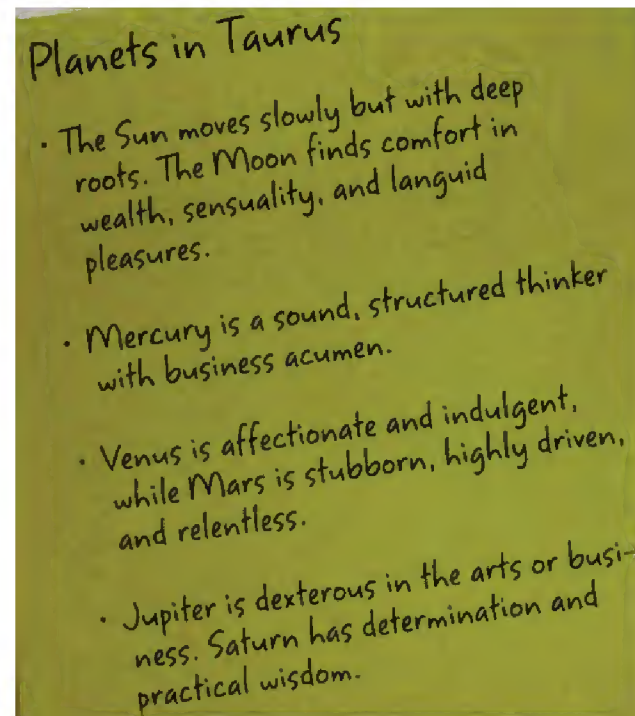 Planets in Taurus
• The Sun moves slowly but with deep
roots. The Moon finds comfort in
wealth, sensuality, and languid
pleasures.
• Mercury is a sound, structured thinker
with business acumen.
• Venus is affectionate and indulgent,
while Mars is stubborn, highly driven,
and relentless.
• Jupiter is dexterous in the arts or busi-
ness. Saturn has determination and
practical wisdom.